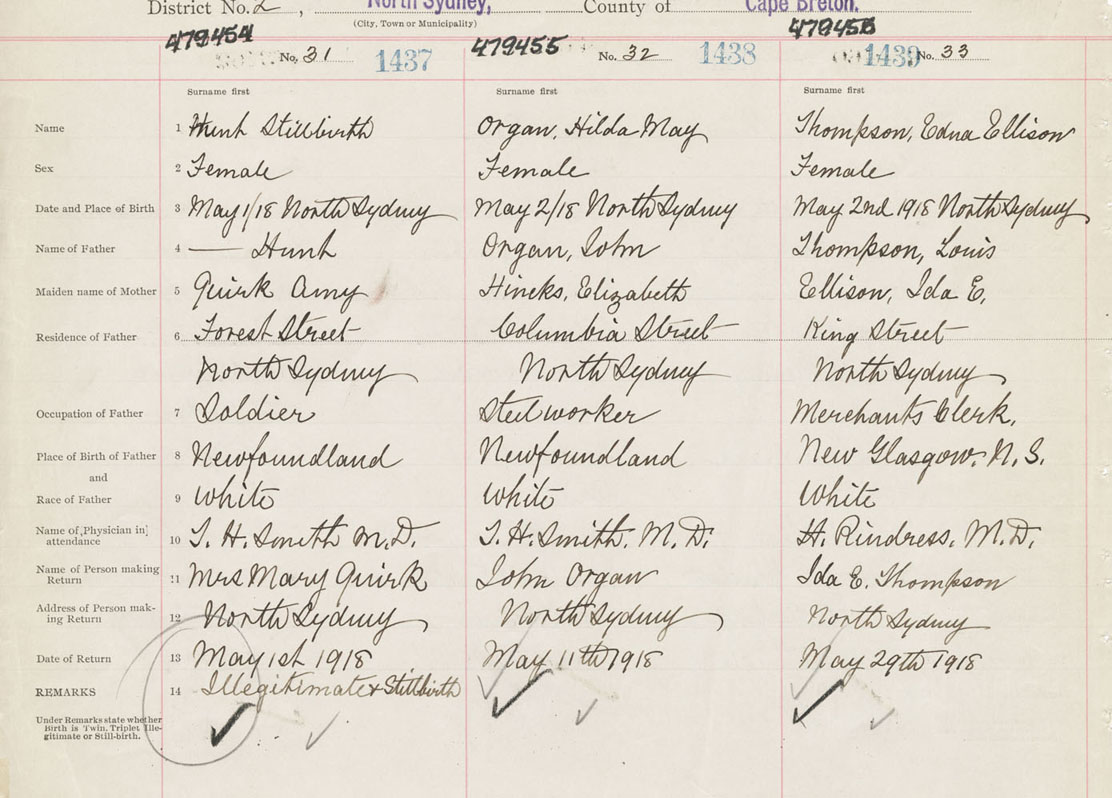 District No. 2, North Sydney, County of Cape Breton.
(City, Town or Municipality)
479454 479455 479456
No. 31 1437 No. 32 1438 1439 No. 33
Surname first Surname first Surname first
Name 1 Stillbirth Organ, Hilda May Thompson, Edna Ellison
Sex 2 Female Female Female
Date and Place of Birth 3 May 1/18 North Sydney May 2/18 North Sydney May 2nd 1918 North Sydney
Name of Father 4 — Organ, John Thompson, Louis
Maiden name of Mother 5 Quirk Amy Hincks, Elizabeth Ellison, Ida E.
Residence of Father 6 Forest Street Columbia Street King Street
North Sydney North Sydney North Sydney
Occupation of Father 7 Soldier Steelworker Merchants Clerk.
Place of Birth of Father 8 Newfoundland Newfoundland New Glasgow. N.S.
and
Race of Father 9 White White White
Name of Physician in
attendance 10 T. H. Smith M.D. T. H. Smith. M.D. H. Rindress. M.D.
Name of Person making
Return 11 Mrs Mary Quirk John Organ Ida E. Thompson
Address of Person mak-
ing Return 12 North Sydney North Sydney North Sydney
Date of Return 13 May 1st 1918 May 11th 1918 May 29th 1918
REMARKS 14 Illegitimate & Stillbirth
Under Remarks state whether
Birth is Twin, Triplet Ille-
gitimate or Still-birth.